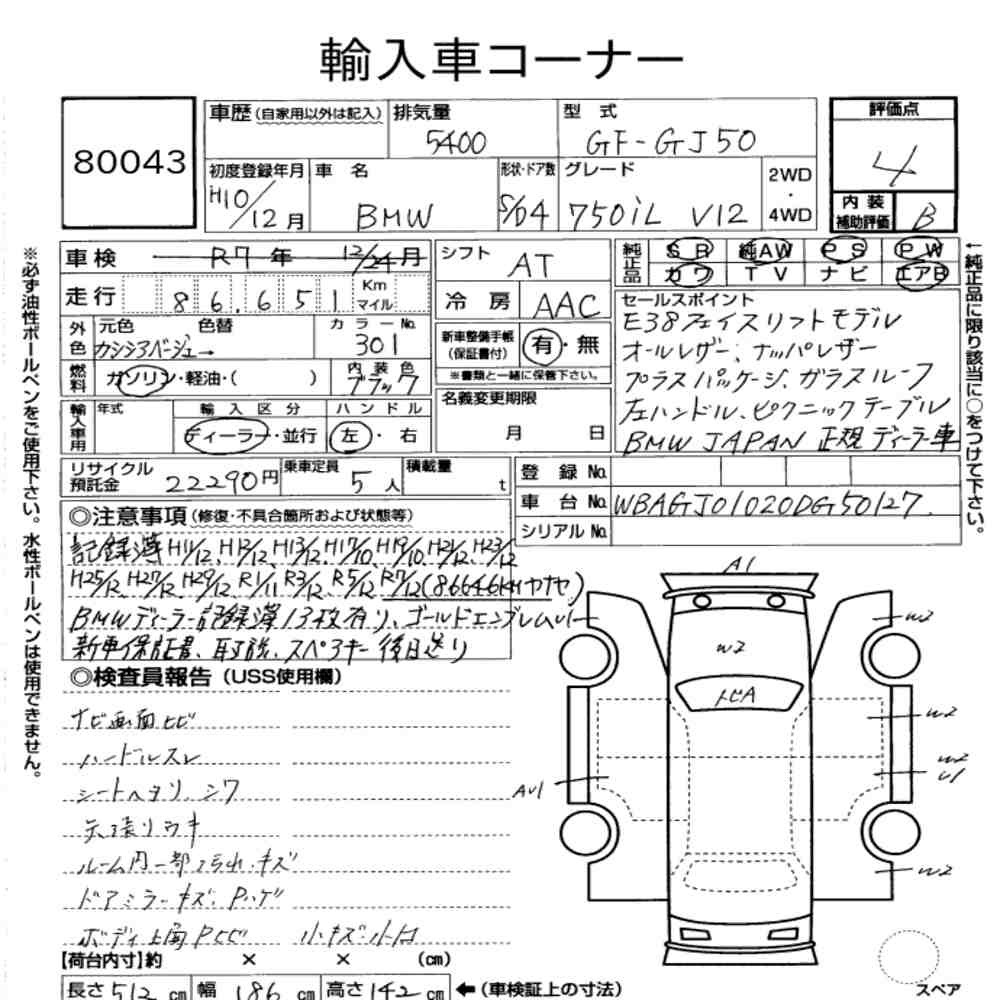 輸入車コーナー
80043
車歴(自家用以外は記入) 排気量 5400 型式 GF-GJ50
評価点 4
初度登録年月 H10/12月 車名 BMW 形状・ドア数 S/64 グレード 750iL V12 2WD・4WD
内装補助評価 B
車検 R7年 12/24月
シフト AT
純正品 SR 純AW PS PW
カワ TV ナビ エアB
走行 86,651 Km マイル
冷房 AAC
外色 元色 色替 カラーNo.
カシミアベージュ 301
新車整備手帳(保証書付) 有・無
※書類と一緒に保管下さい。
燃料 ガソリン・軽油・( ) 内装色 ブラック
名義変更期限 月 日
輸入車用 年式 輸入区分 ディーラー・並行 ハンドル 左・右
セールスポイント
E38フェイスリフトモデル
オールレザー、ナッパレザー
プラスパッケージ、ガラスルーフ
左ハンドル、ピクニックテーブル
BMW JAPAN 正規ディーラー車
リサイクル預託金 22290円 乗車定員 5人 積載量 t
登録No.
車台No. WBAGJ01020DG50127
シリアルNo.
◎注意事項(修復・不具合箇所および状態等)
記録簿 H11/12、H12/12、H13/12、H17/10、H19/10、H21/12、H23/12
H25/12、H27/12、H29/12、R1/11、R3/12、R5/12、R7/12(86646KMヤナセ)
BMWディーラー記録簿13枚有り、ゴールドエンブレムカバー
新車保証書、取説、スペアキー後日送り
◎検査員報告(USS使用欄)
ナビ画面ヒビ
ハンドルスレ
シートヘタリ、シワ
天張りウキ
ルーム内一部汚れ・キズ
ドアミラーキズ、Pハゲ
ボディ上面Pヒビ 小キズ・小凹
【荷台内寸】約 × × (cm)
長さ512cm 幅186cm 高さ142cm ←(車検証上の寸法)
A1
W2
W2
トビA
W2
W2
U1
AU1
W2
スペア
※必ず油性ボールペンをご使用下さい。水性ボールペンは使用できません。
←純正品に限り該当に○をつけて下さい。